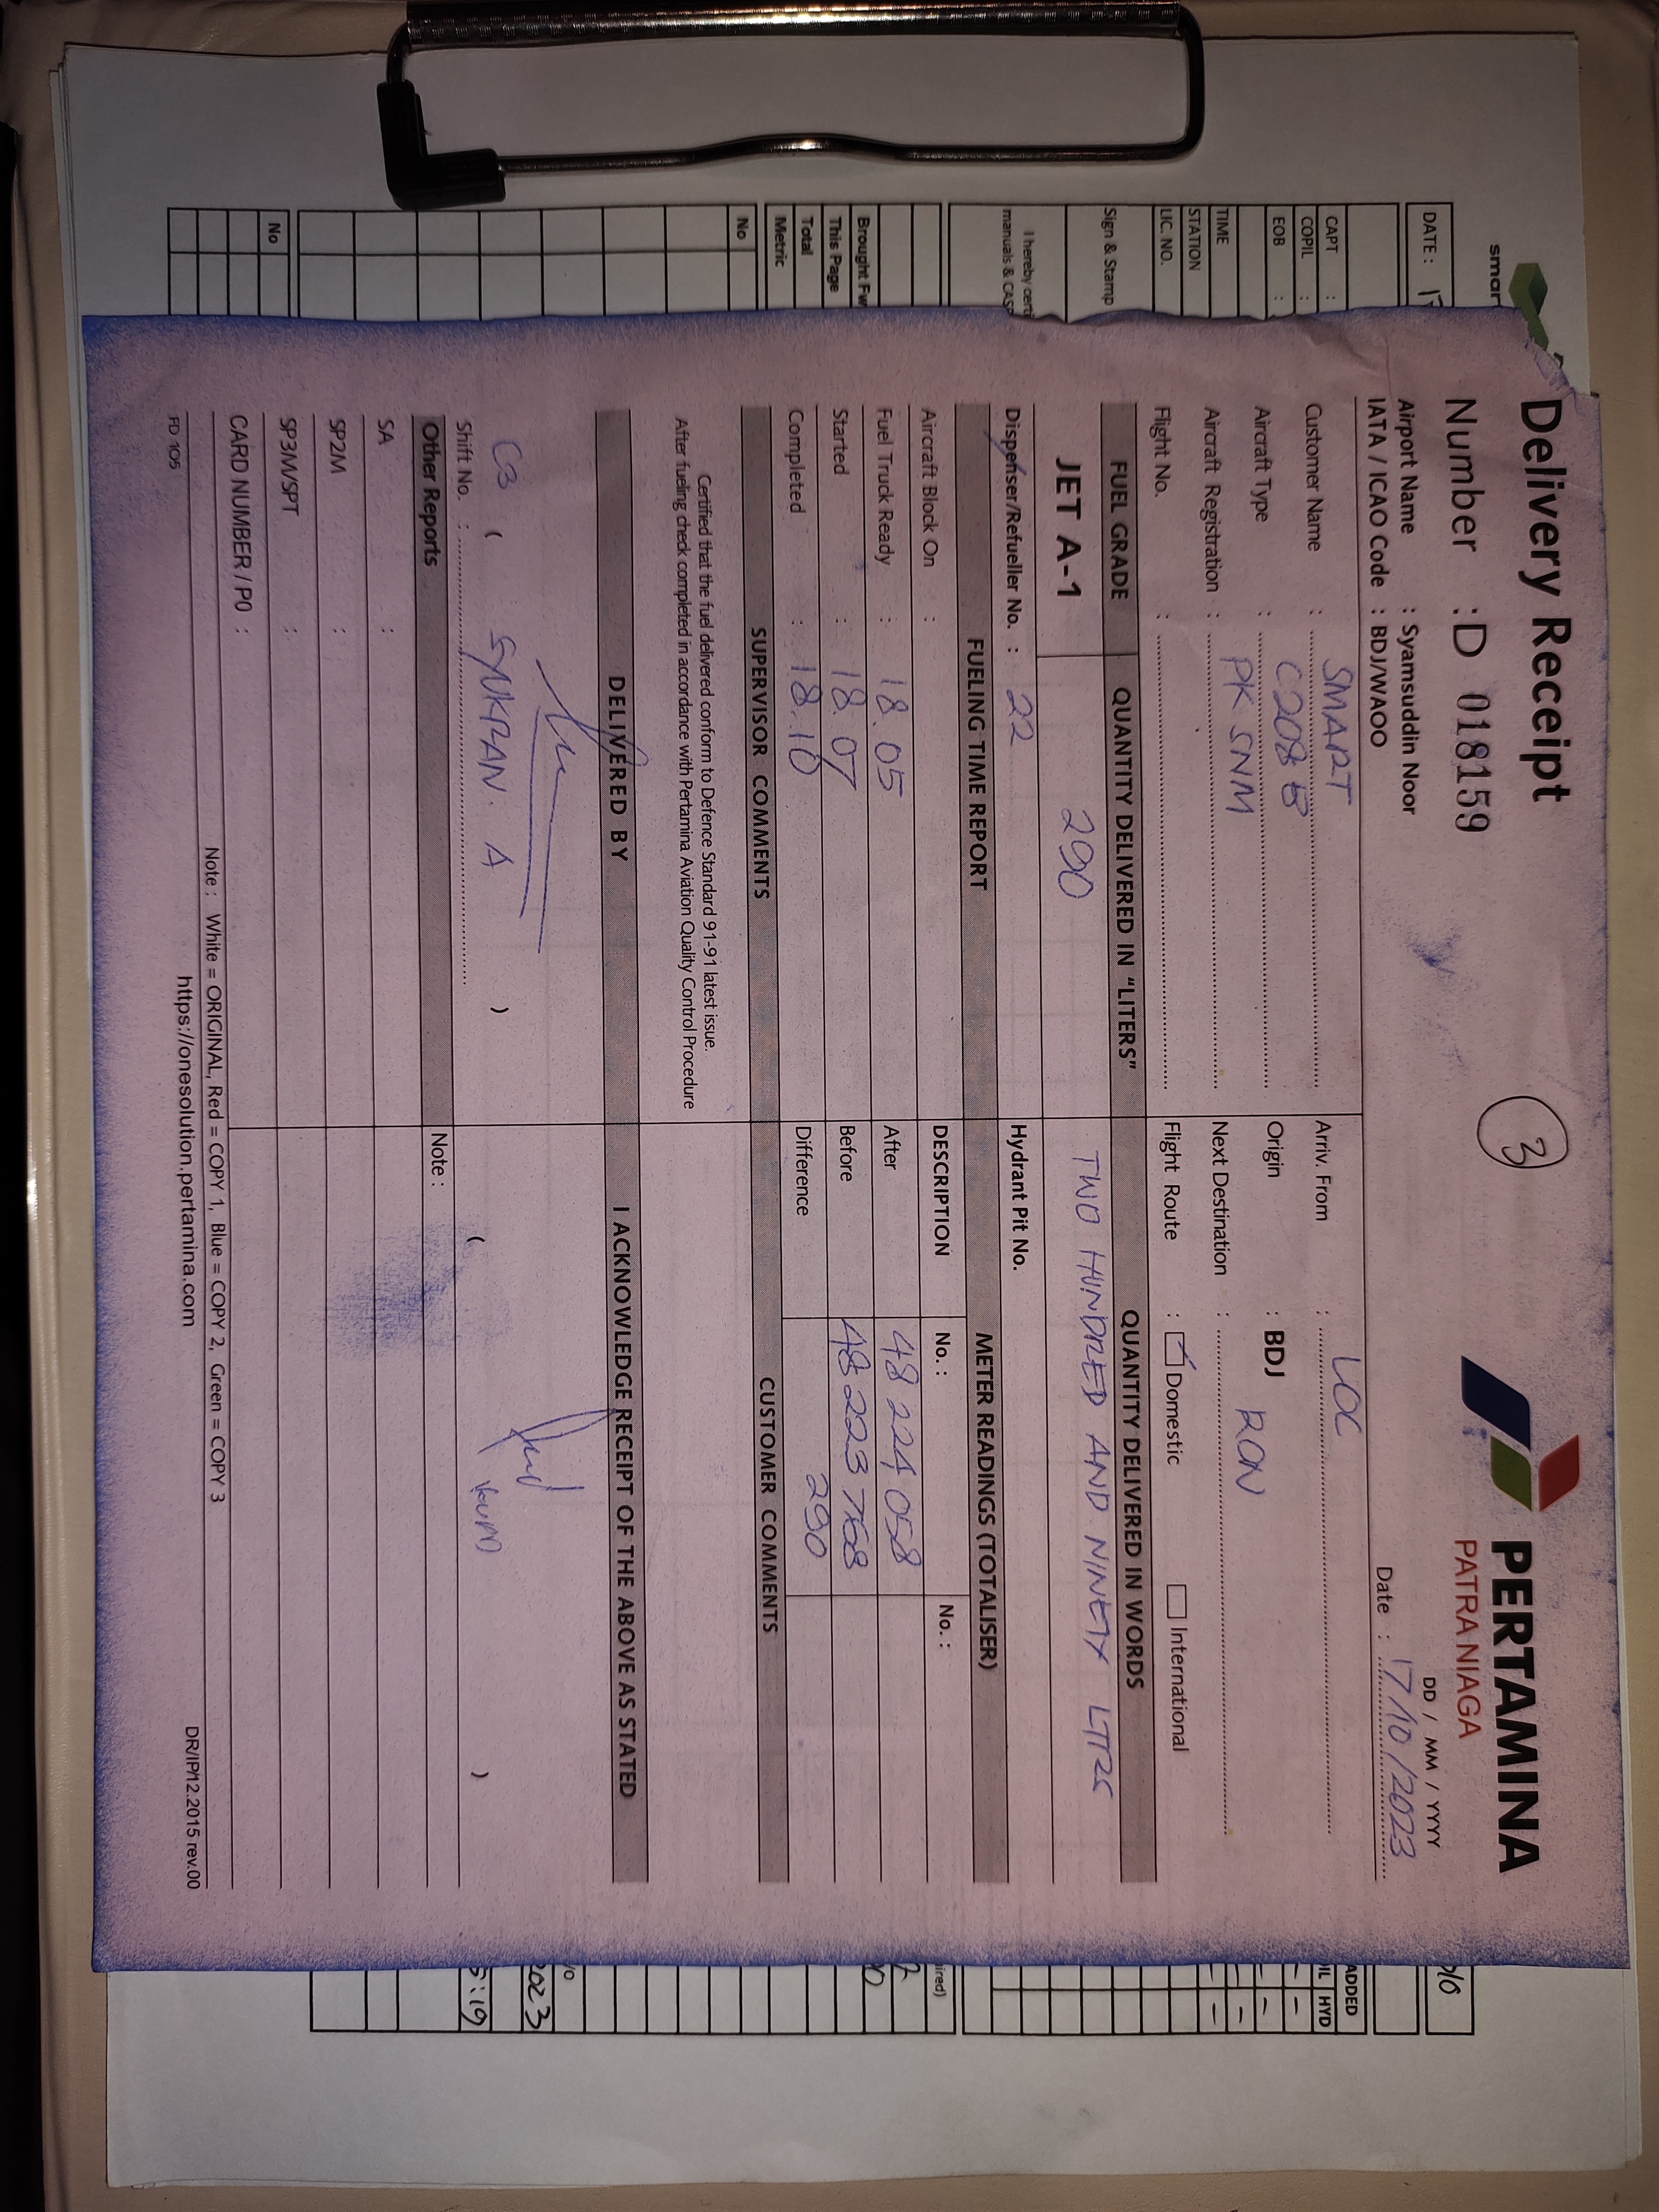 smar
DATE : 17
CAPT :
COPIL :
EOB :
TIME
STATION
LIC. NO.
Sign & Stamp
I hereby certi
manuals & CAS
Brought Fw
This Page
Total
Metric
No
No
Delivery Receipt
3
PERTAMINA
PATRA NIAGA
Number : D 018159
DD / MM / YYYY
Airport Name : Syamsuddin Noor
IATA / ICAO Code : BDJ/WAOO
Date : 17/10/2023
Customer Name : SMART
Arriv. From : LOC
Aircraft Type : C208 B
Origin : BDJ
Aircraft Registration : PK SNM
Next Destination : RON
Flight No. :
Flight Route : Domestic International
FUEL GRADE QUANTITY DELIVERED IN "LITERS" QUANTITY DELIVERED IN WORDS
JET A-1 290 TWO HUNDRED AND NINETY LTRS
Dispenser/Refueller No. : 22 Hydrant Pit No.
FUELING TIME REPORT METER READINGS (TOTALISER)
Aircraft Block On : DESCRIPTION No. : No. :
Fuel Truck Ready : 18.05 After 48 224 058
Started : 18.07 Before 48 223 768
Completed : 18.10 Difference 290
SUPERVISOR COMMENTS CUSTOMER COMMENTS
Certified that the fuel delivered conform to Defence Standard 91-91 latest issue.
After fueling check completed in accordance with Pertamina Aviation Quality Control Procedure
DELIVERED BY I ACKNOWLEDGE RECEIPT OF THE ABOVE AS STATED
C3 ( SYUKRAN. A ) ( )
Shift No. :
Other Reports Note :
SA :
SP2M :
SP3M/SPT :
CARD NUMBER / PO :
Note : White = ORIGINAL, Red = COPY 1, Blue = COPY 2, Green = COPY 3
FD 105 https://onesolution.pertamina.com DR/IP/12.2015 rev.00
ADDED
IL HYD
ired)
2023
5:19